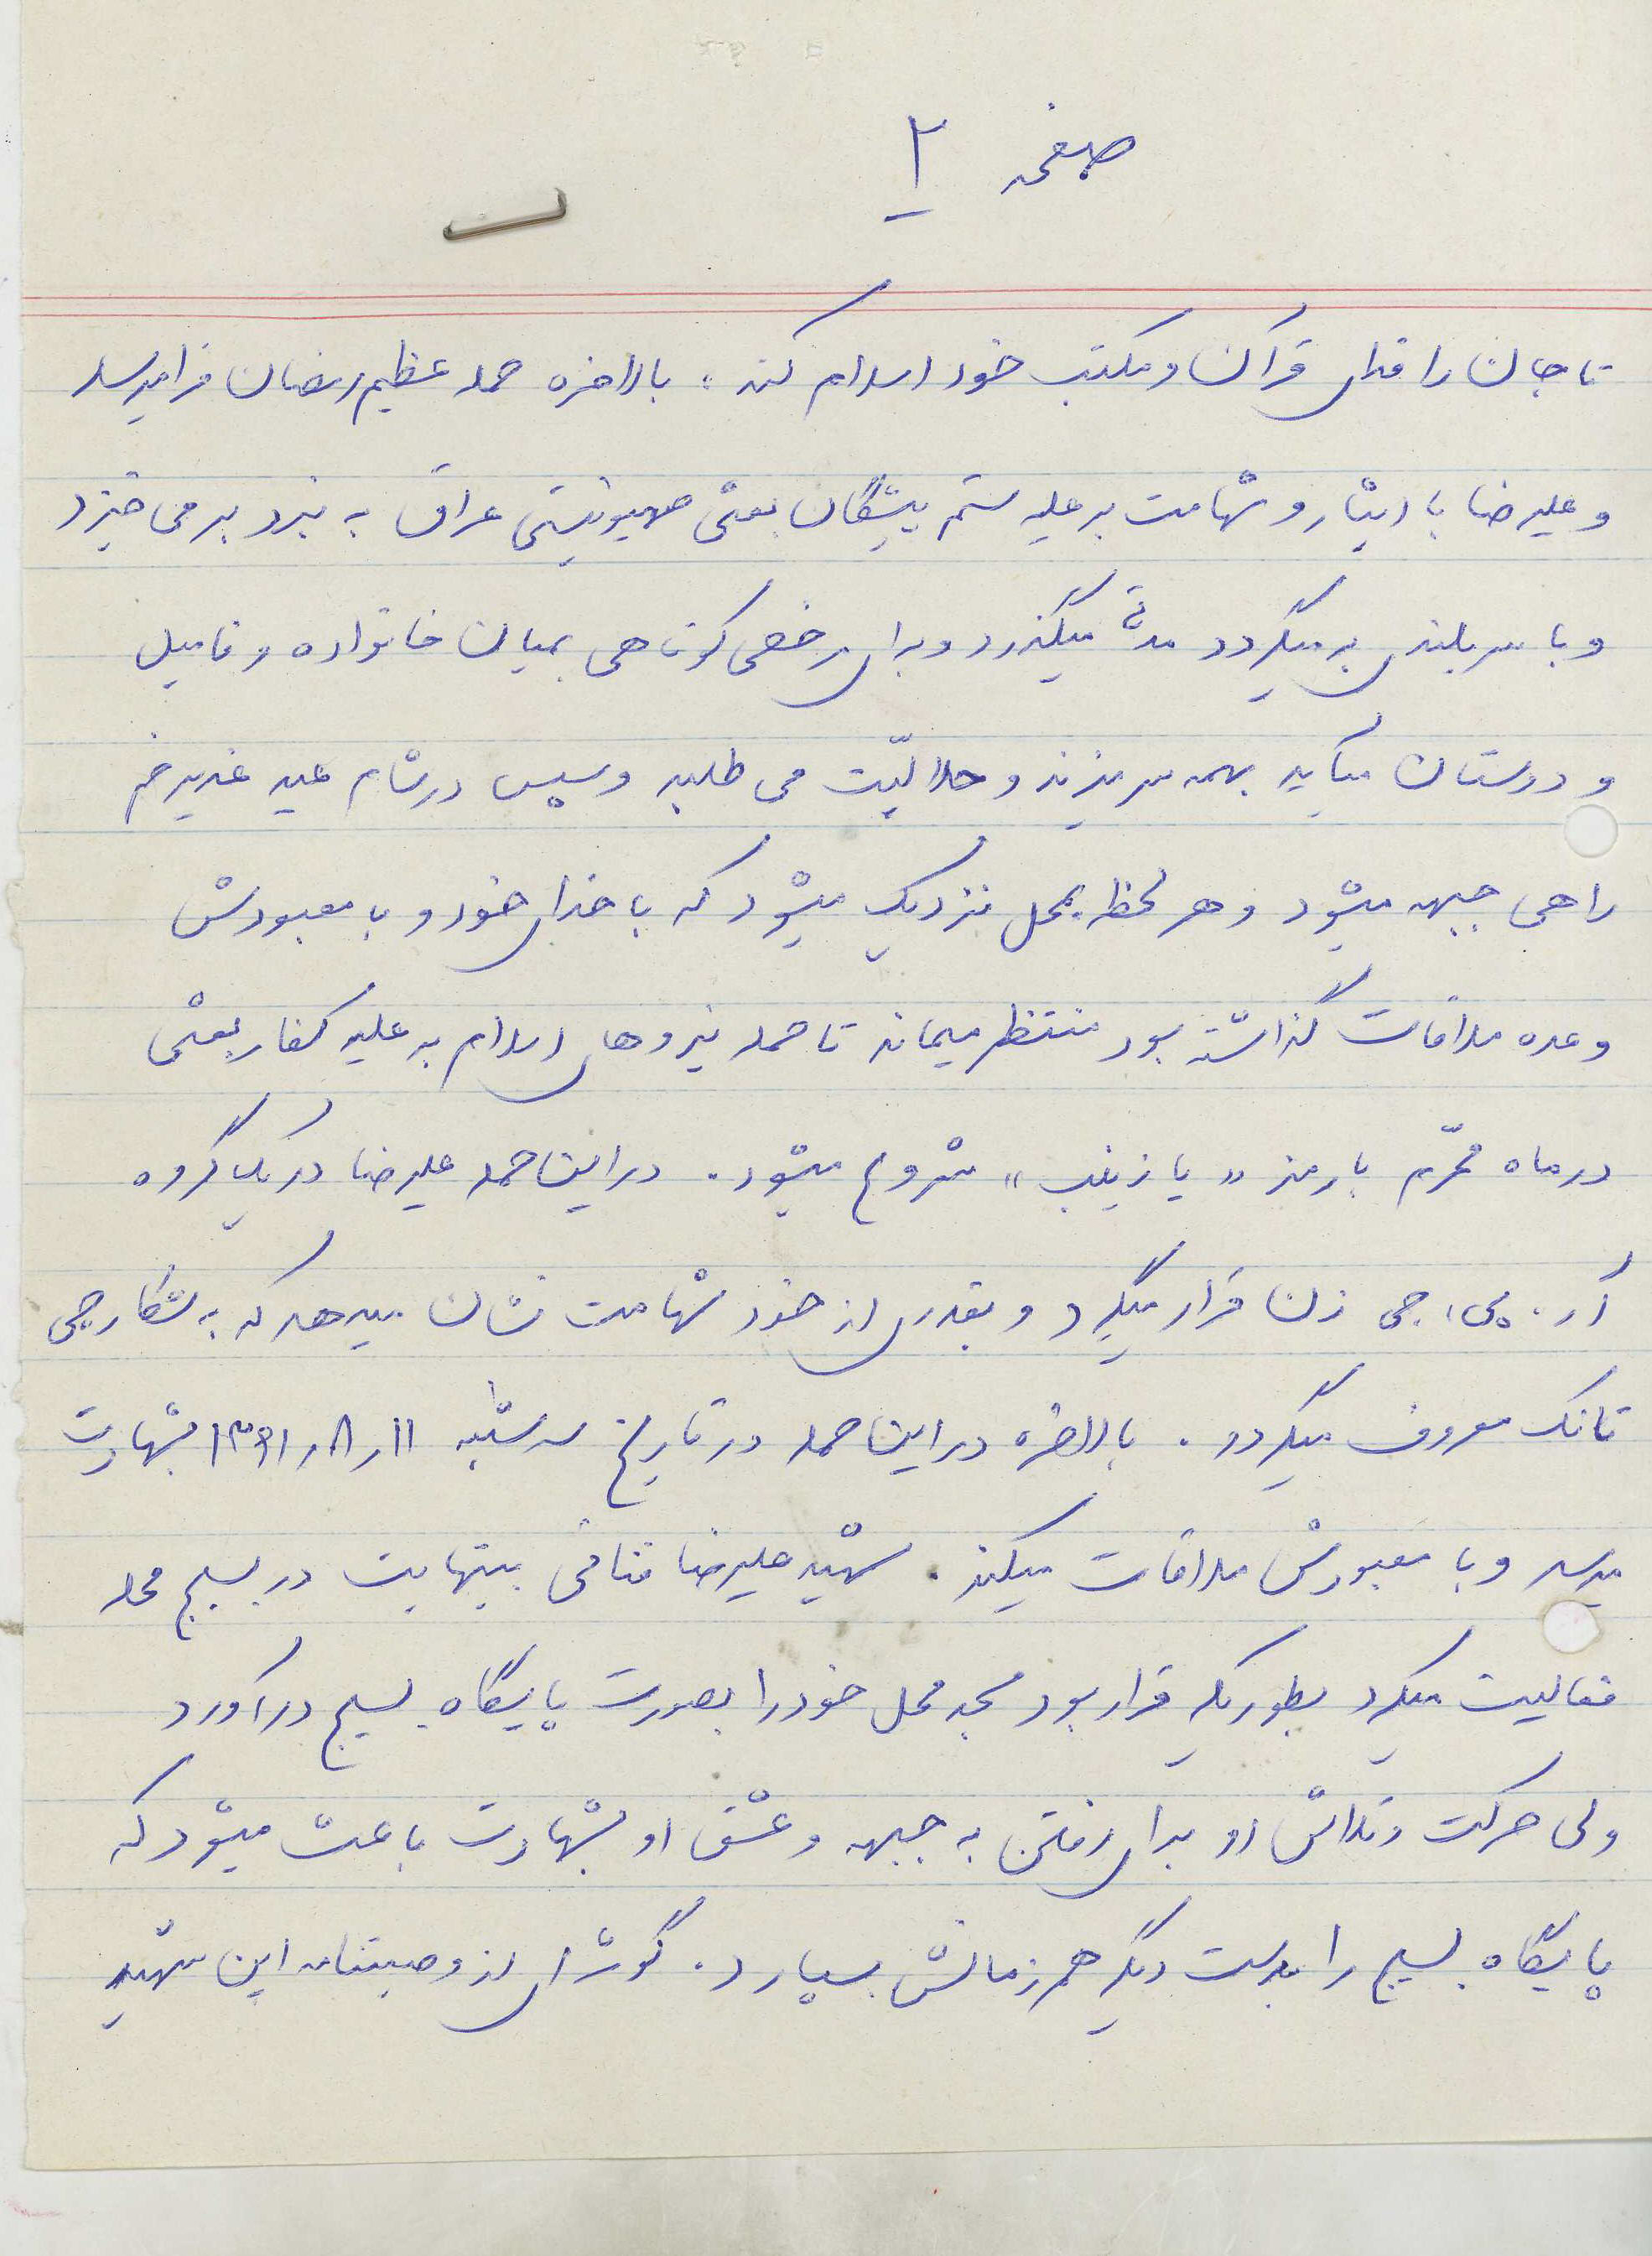 صفحه ۲
تا جان را فدای قرآن و مکتب خود اسلام کند، بالاخره حمله عظیم رمضان فرا میرسد
و علیرضا با ایثار و شهامت بر علیه ستم پیشگان بعثی صهیونیستی عراق به نبرد بر می خیزد
و با سربلندی بر میگردد مدتی میگذرد و برای مرخصی کوتاهی بمیان خانواده و فامیل
و دوستان میآید بهمه سر میزند و حلالیّت می طلبد و سپس در شام عید غدیر خم
راهی جبهه میشود و هر لحظه بمحل نزدیک میشود که با خدای خود و با معبودش
وعده ملاقات گذاشته بود منتظر میماند تا حمله نیروهای اسلام به علیه کفار بعثی
در ماه محرّم با رمز «یا زینب» شروع میشود. در این حمله علیرضا در یک گروه
آر. پی، جی زن قرار میگیرد و بقدری از خود شهامت نشان میدهد که به شکارچی
تانک معروف میگردد. بالاخره در این حمله در تاریخ سه شنبه ۱۱ر۸ر۱۳۶۱ بشهادت
میرسد و با معبودش ملاقات میکند. شهید علیرضا قناقی بینهایت در بسیج محله
فعالیت میکرد بطوریکه قرار بود مسجد محل خود را بصورت پایگاه بسیج در آورد
ولی حرکت و تلاش او برای رفتن به جبهه و عشق او بشهادت باعث میشود که
پایگاه بسیج را بدست دیگر همرزمانش بسپارد. گوشه ای از وصیتنامه این شهید